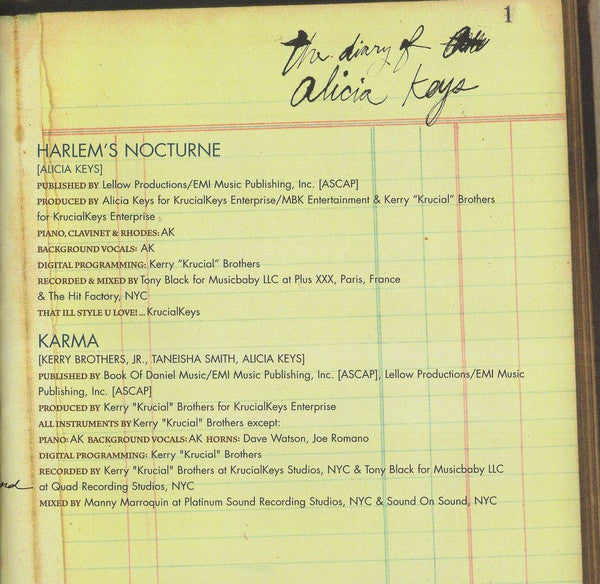 1
the diary of
Alicia Keys
HARLEM'S NOCTURNE
[ALICIA KEYS]
PUBLISHED BY Lellow Productions/EMI Music Publishing, Inc. [ASCAP]
PRODUCED BY Alicia Keys for KrucialKeys Enterprise/MBK Entertainment & Kerry “Krucial” Brothers
for KrucialKeys Enterprise
PIANO, CLAVINET & RHODES: AK
BACKGROUND VOCALS: AK
DIGITAL PROGRAMMING: Kerry “Krucial” Brothers
RECORDED & MIXED BY Tony Black for Musicbaby LLC at Plus XXX, Paris, France
& The Hit Factory, NYC
THAT ILL STYLE U LOVE!... KrucialKeys
KARMA
[KERRY BROTHERS, JR., TANEISHA SMITH, ALICIA KEYS]
PUBLISHED BY Book Of Daniel Music/EMI Music Publishing, Inc. [ASCAP], Lellow Productions/EMI Music
Publishing, Inc. [ASCAP]
PRODUCED BY Kerry "Krucial" Brothers for KrucialKeys Enterprise
ALL INSTRUMENTS BY Kerry "Krucial" Brothers except:
PIANO: AK BACKGROUND VOCALS: AK HORNS: Dave Watson, Joe Romano
DIGITAL PROGRAMMING: Kerry "Krucial" Brothers
RECORDED BY Kerry "Krucial" Brothers at KrucialKeys Studios, NYC & Tony Black for Musicbaby LLC
at Quad Recording Studios, NYC
MIXED BY Manny Marroquin at Platinum Sound Recording Studios, NYC & Sound On Sound, NYC